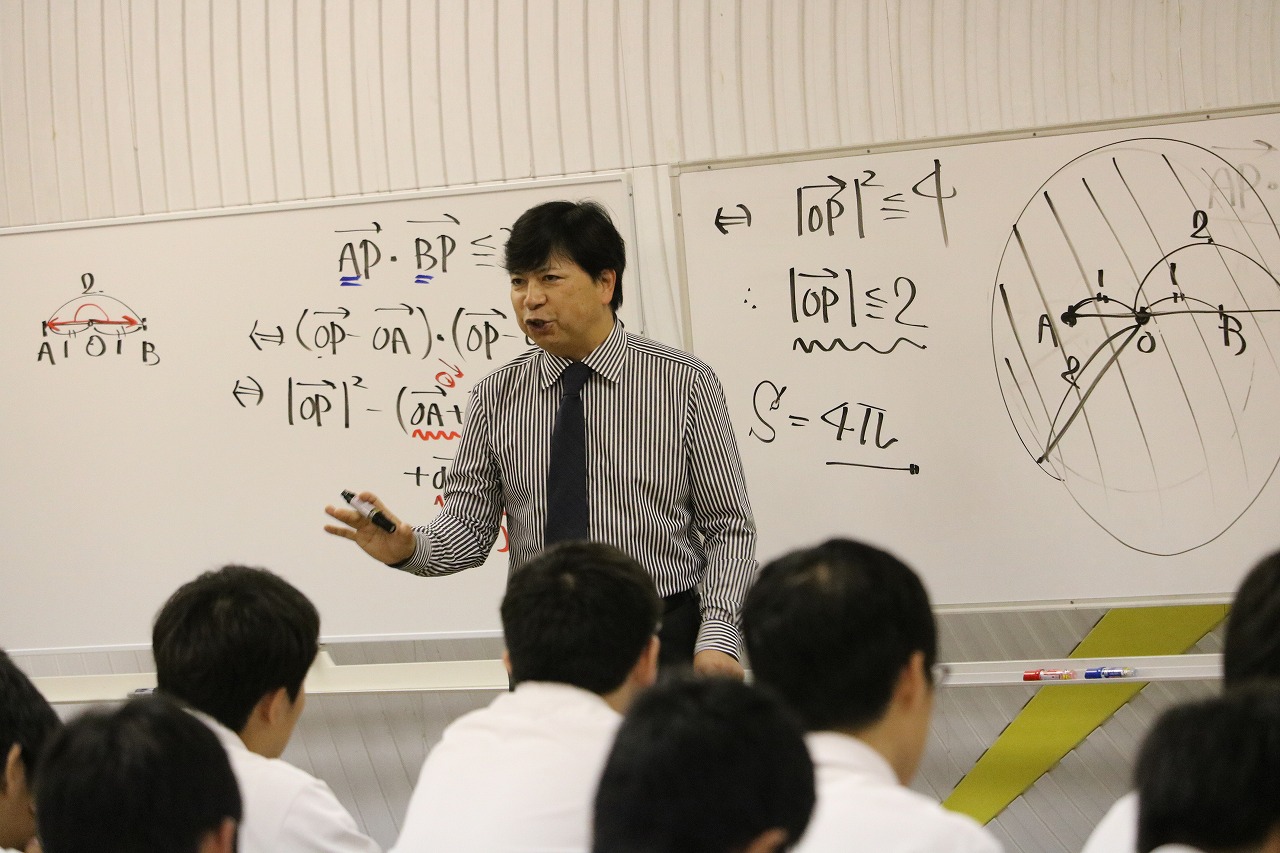 2
A 1 O 1 B
AP・BP ≦
⇔ (OP - OA)・(OP -
⇔ |OP|² - (OA+
O
+
⇔ |OP|² ≦ 4
∴ |OP| ≦ 2
S = 4π
AP・
2
1 1
A O B
2